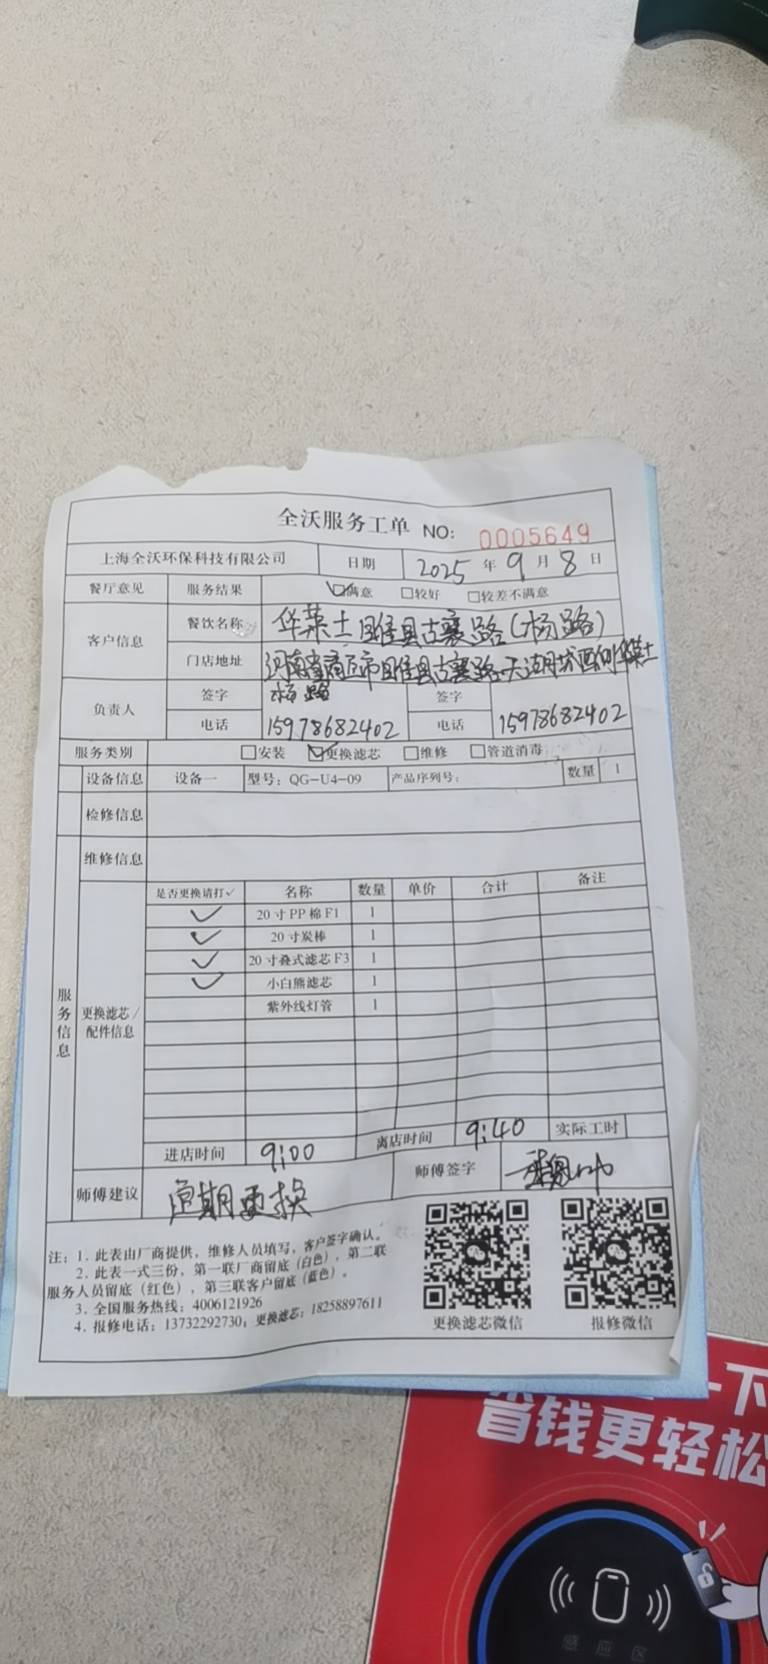 全沃服务工单 NO: 0005649
上海全沃环保科技有限公司 日期 2025 年 9 月 8 日
餐厅意见 服务结果 ☑满意 □较好 □较差不满意
客户信息 餐饮名称 华莱士睢县古襄路(杨路)
门店地址 河南省商丘市睢县古襄路天湖城西侧华莱士
负责人 签字 杨路 签字
电话 15978682402 电话 15978682402
服务类别 □安装 ☑更换滤芯 □维修 □管道消毒
设备信息 设备一 型号: QG-U4-09 产品序列号: 数量 1
检修信息
维修信息
服务信息
更换滤芯/配件信息
是否更换请打✓ 名称 数量 单价 合计 备注
✓ 20寸PP棉F1 1
✓ 20寸炭棒 1
✓ 20寸叠式滤芯F3 1
✓ 小白熊滤芯 1
紫外线灯管 1
进店时间 9:00 离店时间 9:40 实际工时
师傅建议 定期更换 师傅签字
注: 1. 此表由厂商提供, 维修人员填写, 客户签字确认。
2. 此表一式三份, 第一联厂商留底(白色), 第二联
服务人员留底(红色), 第三联客户留底(蓝色)。
3. 全国服务热线: 4006121926
4. 报修电话: 13732292730; 更换滤芯: 18258897611
更换滤芯微信 报修微信
一下
省钱更轻松
感应区